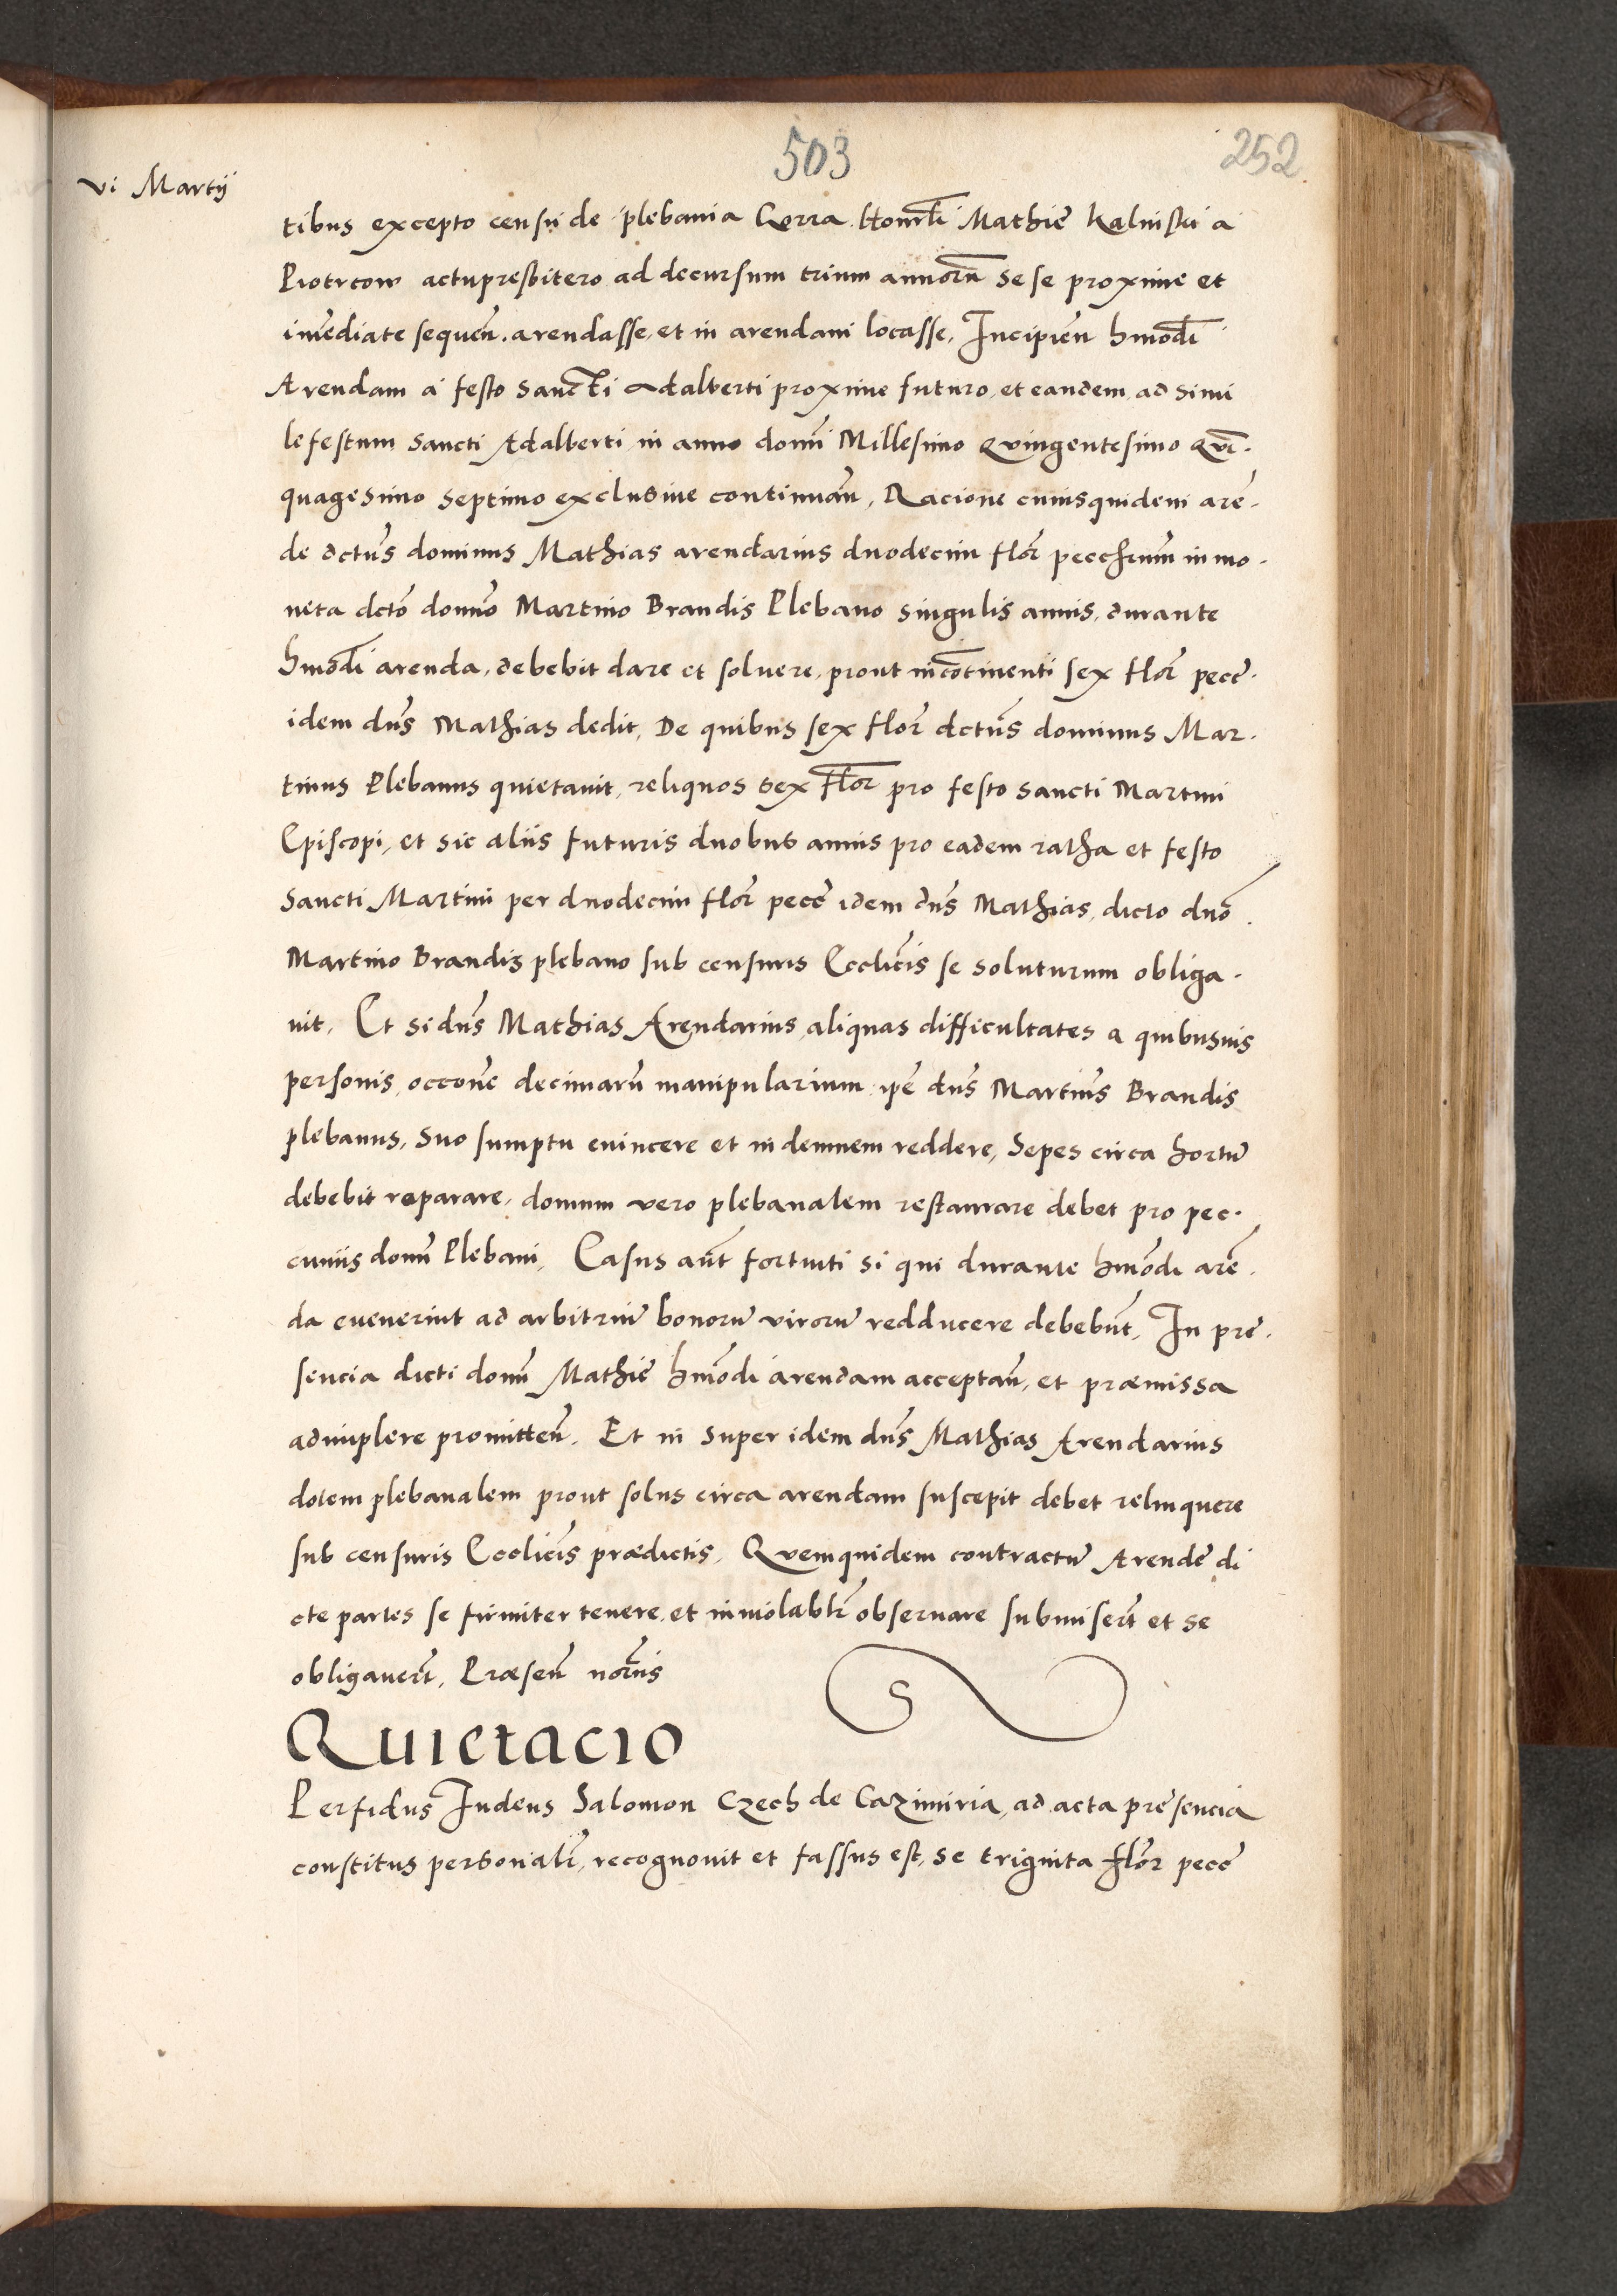 503
252
vi Martij
tibus excepto censu de plebania Gorra Honorabli Mathie Kalnisski a
Piotrcow actupresbitero ad decursum trium annorū se se proxime et
imēdiate sequen̄. arendasse, et in arendam locasse, Incipien̄ hmōdi
Arendam a festo Sancti Adalberti proxime futuro, et eandem, ad simi
le festum Sancti Adalberti in anno domī Millesimo Qvingentesimo Qvī.
quagesimo septimo exclusive continuan̄, Racione cuiusquidem arē.
de dctus̄ dominus Mathias arendarius duodecim flor̄ pecchuniar̄ in mo.
neta dctō domno Martino Brandis Plebano singulis annis, durante
hmōdi arenda, debebit dare et soluere, prout incōtinenti sex flor̄ pecc̄.
idem dn̄s Mathias dedit, De quibus sex flor̄ dctus̄ dominus Mar.
tinus Plebanus quietauit, reliquos sex flor̄ pro festo Sancti Martini
Episcopi, et sic aliis futuris duobus annis pro eadem ratha et festo
Sancti Martini per duodecim flor̄ pecc̄ idem dn̄s Mathias, dicto dn̄o.
Martino Brandis plebano sub censuris Eccliēis se soluturum obliga.
uit. Et si dn̄s Mathias Arendarius aliquas difficultates a quibusuis
personis, occōne decimarū manipularium ipē dn̄s Martinūs Brandis
plebanus, suo sumptu euincere et indemnem reddere, Sepes circa hortū
debebit reparare, domum vero plebanalem restaurare debet pro pec.
cuniis domī Plebani, Casus aūt fortuiti si qui durante hmōdi arē.
da euenerint ad arbitriū bonorū virorū redducere debebūt, In prē.
sencia dicti domī Mathie hmōdi arendam acceptan̄, et præmissa
adimplere promitten̄. Et in super idem dn̄s Mathias Arendarius
dotem plebanalem prout solus circa arendam suscepit debet relinquere
sub censuris Eccliēis prædictis, Qvemquidem contractū Arende di
cte partes se firmiter tenere, et inuiolablr̄ obseruare submiserūt et se
obligauerūt, Præsen̄ nōriis
QUIETACIO
Perfidus Iudeus Salomon Czech de Cazimiria, ad acta presencia
constitus personalr̄, recognouit et fassus est, se triginta flor̄ pecc̄